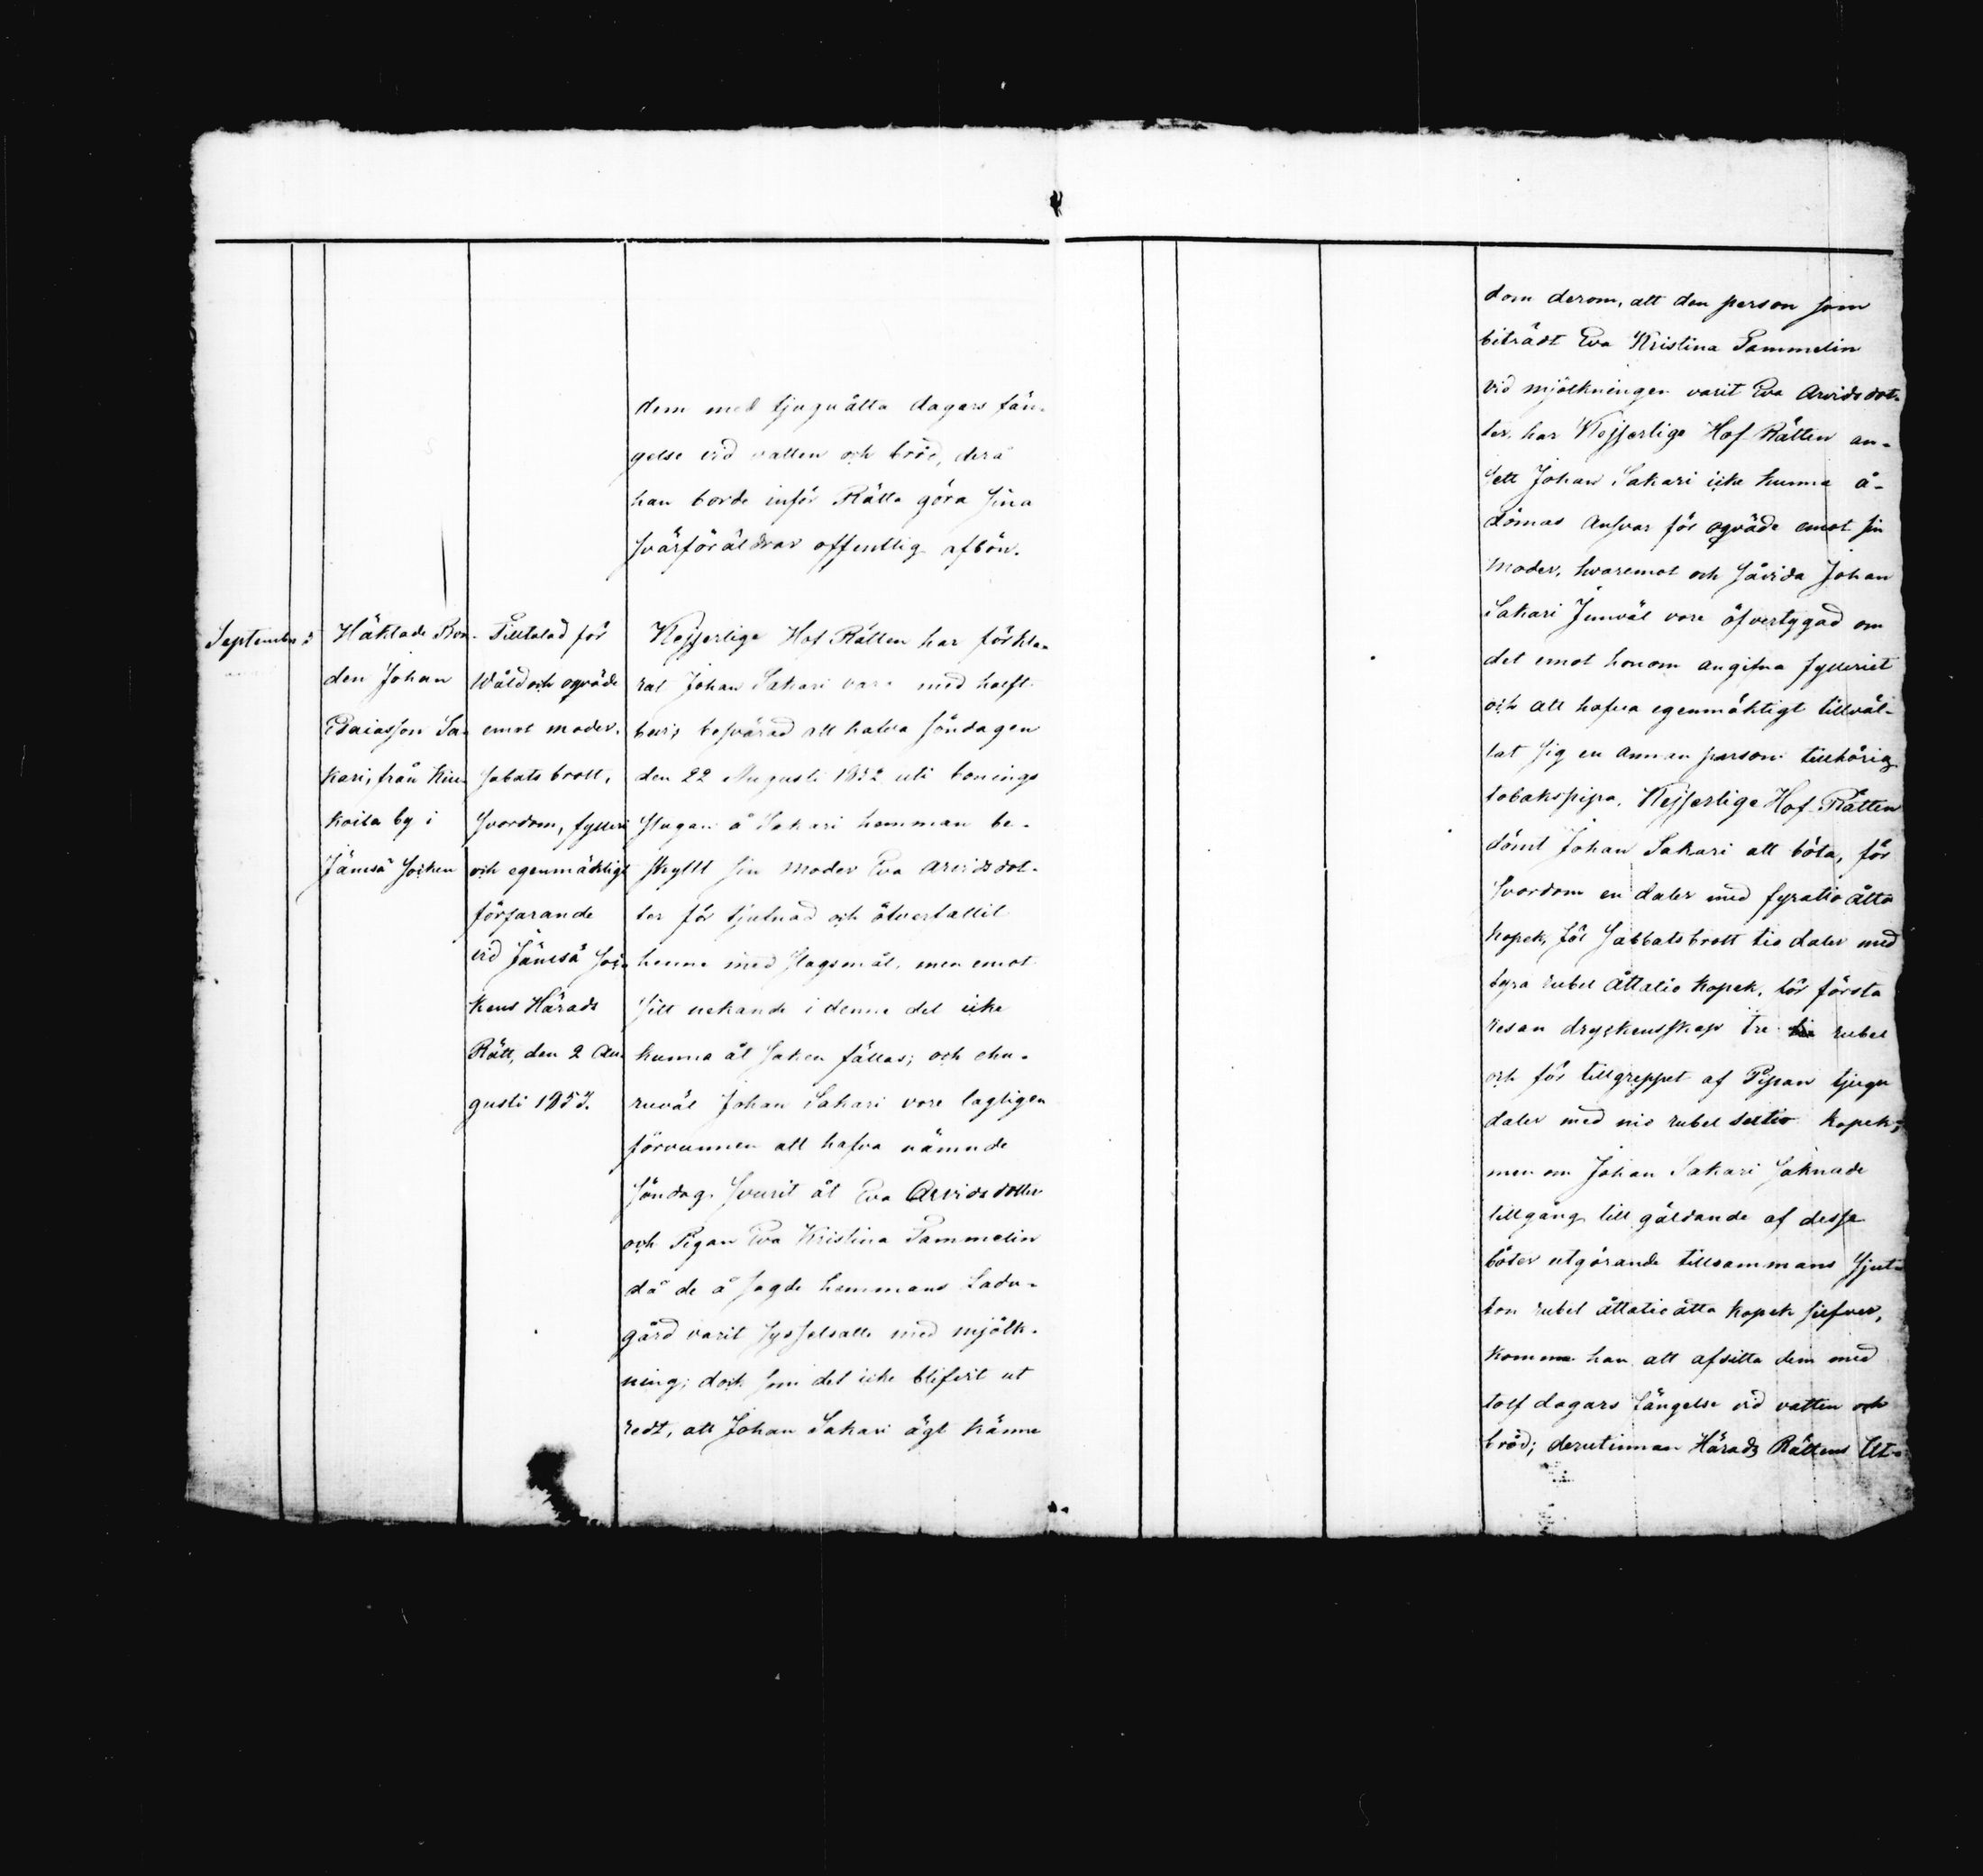 dem med tjuguåtta dagars fän-
gelse vid vatten och bröd, derå
han borde inför Rätta göra sina
svärföräldrar offentlig afbön.
September
Häktade Bon-
den Johan
Esaiasson Sa-
kari, från
koila by i
Jämsä socken
Tilltalad för
Wåld och ogväde
emot moder,
sabatsbrott,
svordom, fylleri
och egenmäktigt
förfarande
vid Jämsä Soc-
kens Härads
Rätt, den 2 Au-
gusti 1853.
Kejserliga Hof Rätten har förkla-
rat Johan Sakari vara med hälft-
bevis besvärad att hafva söndagen
den 22 Augusti 1852 uti bonings
stugan å Sakari hemman be-
skyllt sin moder Eva Arvidsdot-
ter för tjufnad och öfverfallit
henne med slagsmål, men emot
sitt nekande i denne del icke
kunna åt saken fällas; och ehu-
ruväl Johan Sakari vore lagligen
förvunnen att hafva nämnde
söndag svurit åt Eva Arvidsdotter
och Pigan Eva Kristina Tammelin
då de å sagde hemmans ladu-
gård varit sysselsatte med mjölk-
ning; dock som det icke blifvit ut
redt, att Johan Sakari ägt känne
dom derom, att den person som
biträdt Eva Kristina Tammelin
vid mjölkningen varit Eva Arvidsdot-
ter, har Kejserliga Hof Rätten an-
sett Johan Sakari icke kunna å-
dömas ansvar för ogväde emot sin
moder, hvaremot och såvida Johan
Sakari jemväl vore öfvertygad om
det emot honom angifna fylleriet
och att hafva egenmäktigt tillväl-
lat sig en annan person tillhörig
tobakspipa, Kejserliga Hof Rätten
dömt Johan Sakari att böta, för
svordom en daler med fyratioåtta
kopek, för sabbatsbrott tio daler med
fyra rubel åttatio kopek, för första
resan dryckenskap tre rubel
och för tillgreppet af Pipan tjugu
daler med nio rubel sextio kopek;
men om Johan Sakari saknade
tillgång till gäldande af dessa
böter utgörande tillsammans sjut-
ton rubel åttatioåtta kopek silfver,
komme han att afsitta dem med
tolf dagars fängelse vid vatten och
bröd; derutinnan Härads Rättens Ut-